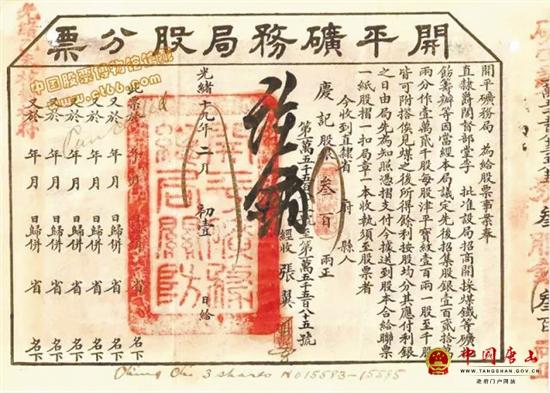 開平礦務局股分票
開平礦務局 為給股票事案奉
直隸爵閣督部堂李 批准設局招商開採煤鐵等礦
飭籌辦等因當經本局議定先後招集股銀壹百貳拾萬
兩分作壹萬貳千股每股津平寶紋壹百兩一股至千股
皆可附搭俟見煤之後所得餘利按股均分其應付利銀
之日由局先為知照憑摺支付今據送到股本合給聯票
一紙股摺一扣局章一本收執須至股票者
今收到直隸省 府 縣人
慶記股銀叁百兩正
號至第 萬五千五百八十五號
經收 張翼
註銷
光緒十九年二月 初壹 日給
此票於 年 月 日歸併 省 名下
又於 年 月 日歸併 省 名下
又於 年 月 日歸併 省 名下
又於 年 月 日歸併 省 名下
又於 年 月 日歸併 省 名下
3 shares No 15583-15585
中国股票博物馆
www.cl66.com
中国唐山
WWW.TANGSHAN.GOV.CN
政府门户网站